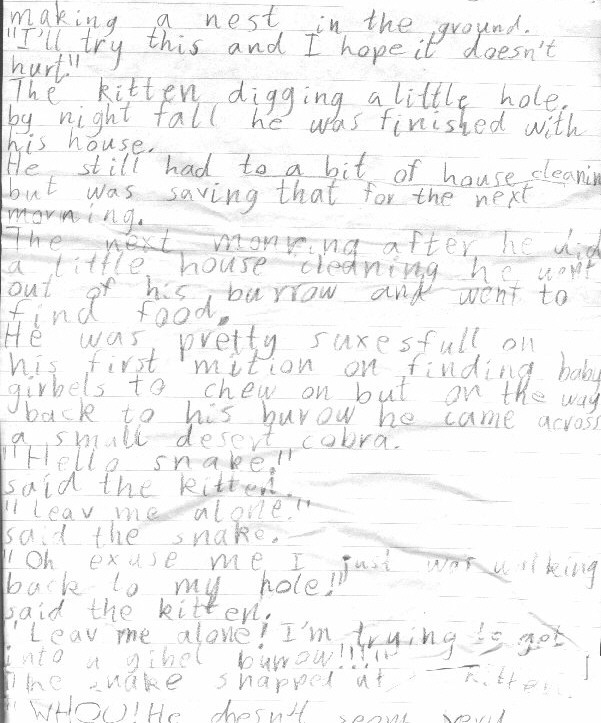 making a nest in the ground.
"I'll try this and I hope it doesn't
hurt!"
The kitten digging a little hole.
by night fall he was finished with
his house.
He still had to a bit of house cleanin
but was saving that for the next
morning.
The next monring after he did
a little house cleaning he went
out of his burrow and went to
find food.
He was pretty suxesfull on
his first mition on finding baby
girbels to chew on but on the way
back to his burow he came across
a small desert cobra.
"Hello snake!"
said the kitten.
"Leav me alone!"
said the snake.
"Oh exuse me I just was walking
back to my hole!"
said the kitten.
"Leav me alone! I'm trying to get
into a gibel burrow!!!"
The snake snapped at kitten
"WHOU! He doesn't seem